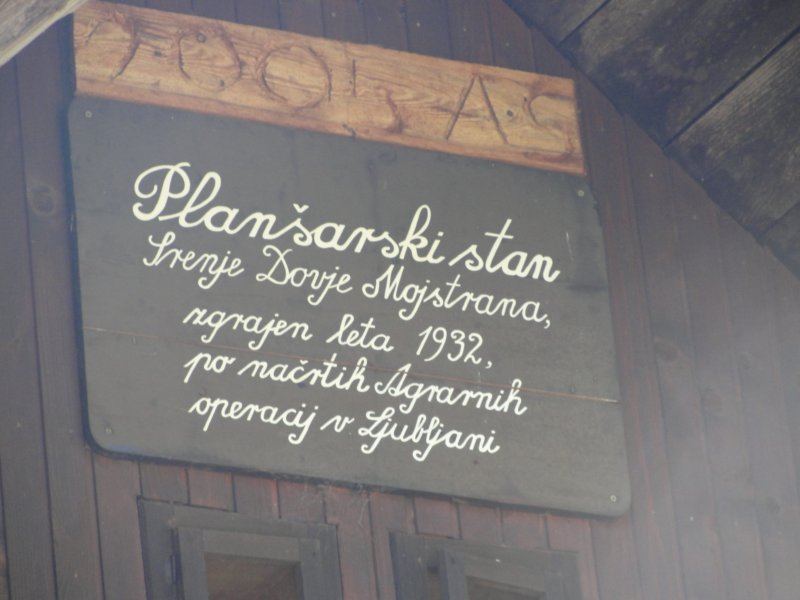 Planšarski stan
Srenje Dovje Mojstrana,
zgrajen leta 1932,
po načrtih Agrarnih
operacij v Ljubljani